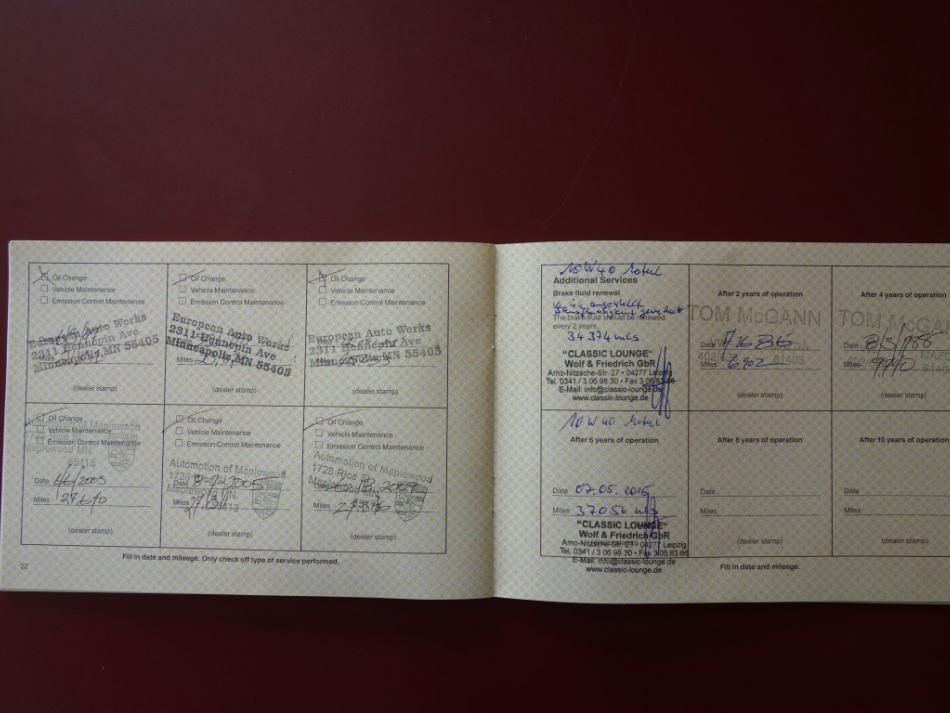 Oil Change
Vehicle Maintenance
Emission Control Maintenance
European Auto Works
2311 Hennepin Ave
Minneapolis, MN 55405
Miles
(dealer stamp)
Oil Change
Vehicle Maintenance
Emission Control Maintenance
European Auto Works
2311 Hennepin Ave
Minneapolis, MN 55405
(dealer stamp)
Oil Change
Vehicle Maintenance
Emission Control Maintenance
European Auto Works
2311 Hennepin Ave
Minneapolis, MN 55405
(dealer stamp)
Oil Change
Vehicle Maintenance
Emission Control Maintenance
Maplewood
Maplewood MN.
55113
Date 2003
Miles 27610
(dealer stamp)
Oil Change
Vehicle Maintenance
Emission Control Maintenance
Automotion of Maplewood
1728 Rice St.
Date 2005
Miles
(dealer stamp)
Oil Change
Vehicle Maintenance
Emission Control Maintenance
Automotion of Maplewood
1728 Rice St.
Miles
(dealer stamp)
Fill in date and mileage. Only check off type of service performed.
22
10W40 Motul
Additional Services
Brake fluid renewal
The brake fluid should be renewed
every 2 years.
34374 mls
"CLASSIC LOUNGE"
Wolf & Friedrich GbR
Arno-Nitzsche-Str. 27 • 04277 Leipzig
Tel. 0341 / 3 06 98 30 • Fax 3 06 83 66
E-Mail: info@classic-lounge.de
www.classic-lounge.de
After 2 years of operation
TOM McGANN
Date 7/26/86
Miles 6,902
(dealer stamp)
After 4 years of operation
TOM McGANN
Date 8/3/88
Miles
(dealer stamp)
10W40 Motul
After 6 years of operation
Date 07.05.2015
Miles 37056 mls
"CLASSIC LOUNGE"
Wolf & Friedrich GbR
Arno-Nitzsche-Str. 27 • 04277 Leipzig
Tel. 0341 / 3 06 98 30 • Fax 3 06 83 66
E-Mail: info@classic-lounge.de
www.classic-lounge.de
After 8 years of operation
Date
Miles
(dealer stamp)
After 10 years of operation
Date
Miles
(dealer stamp)
Fill in date and mileage.